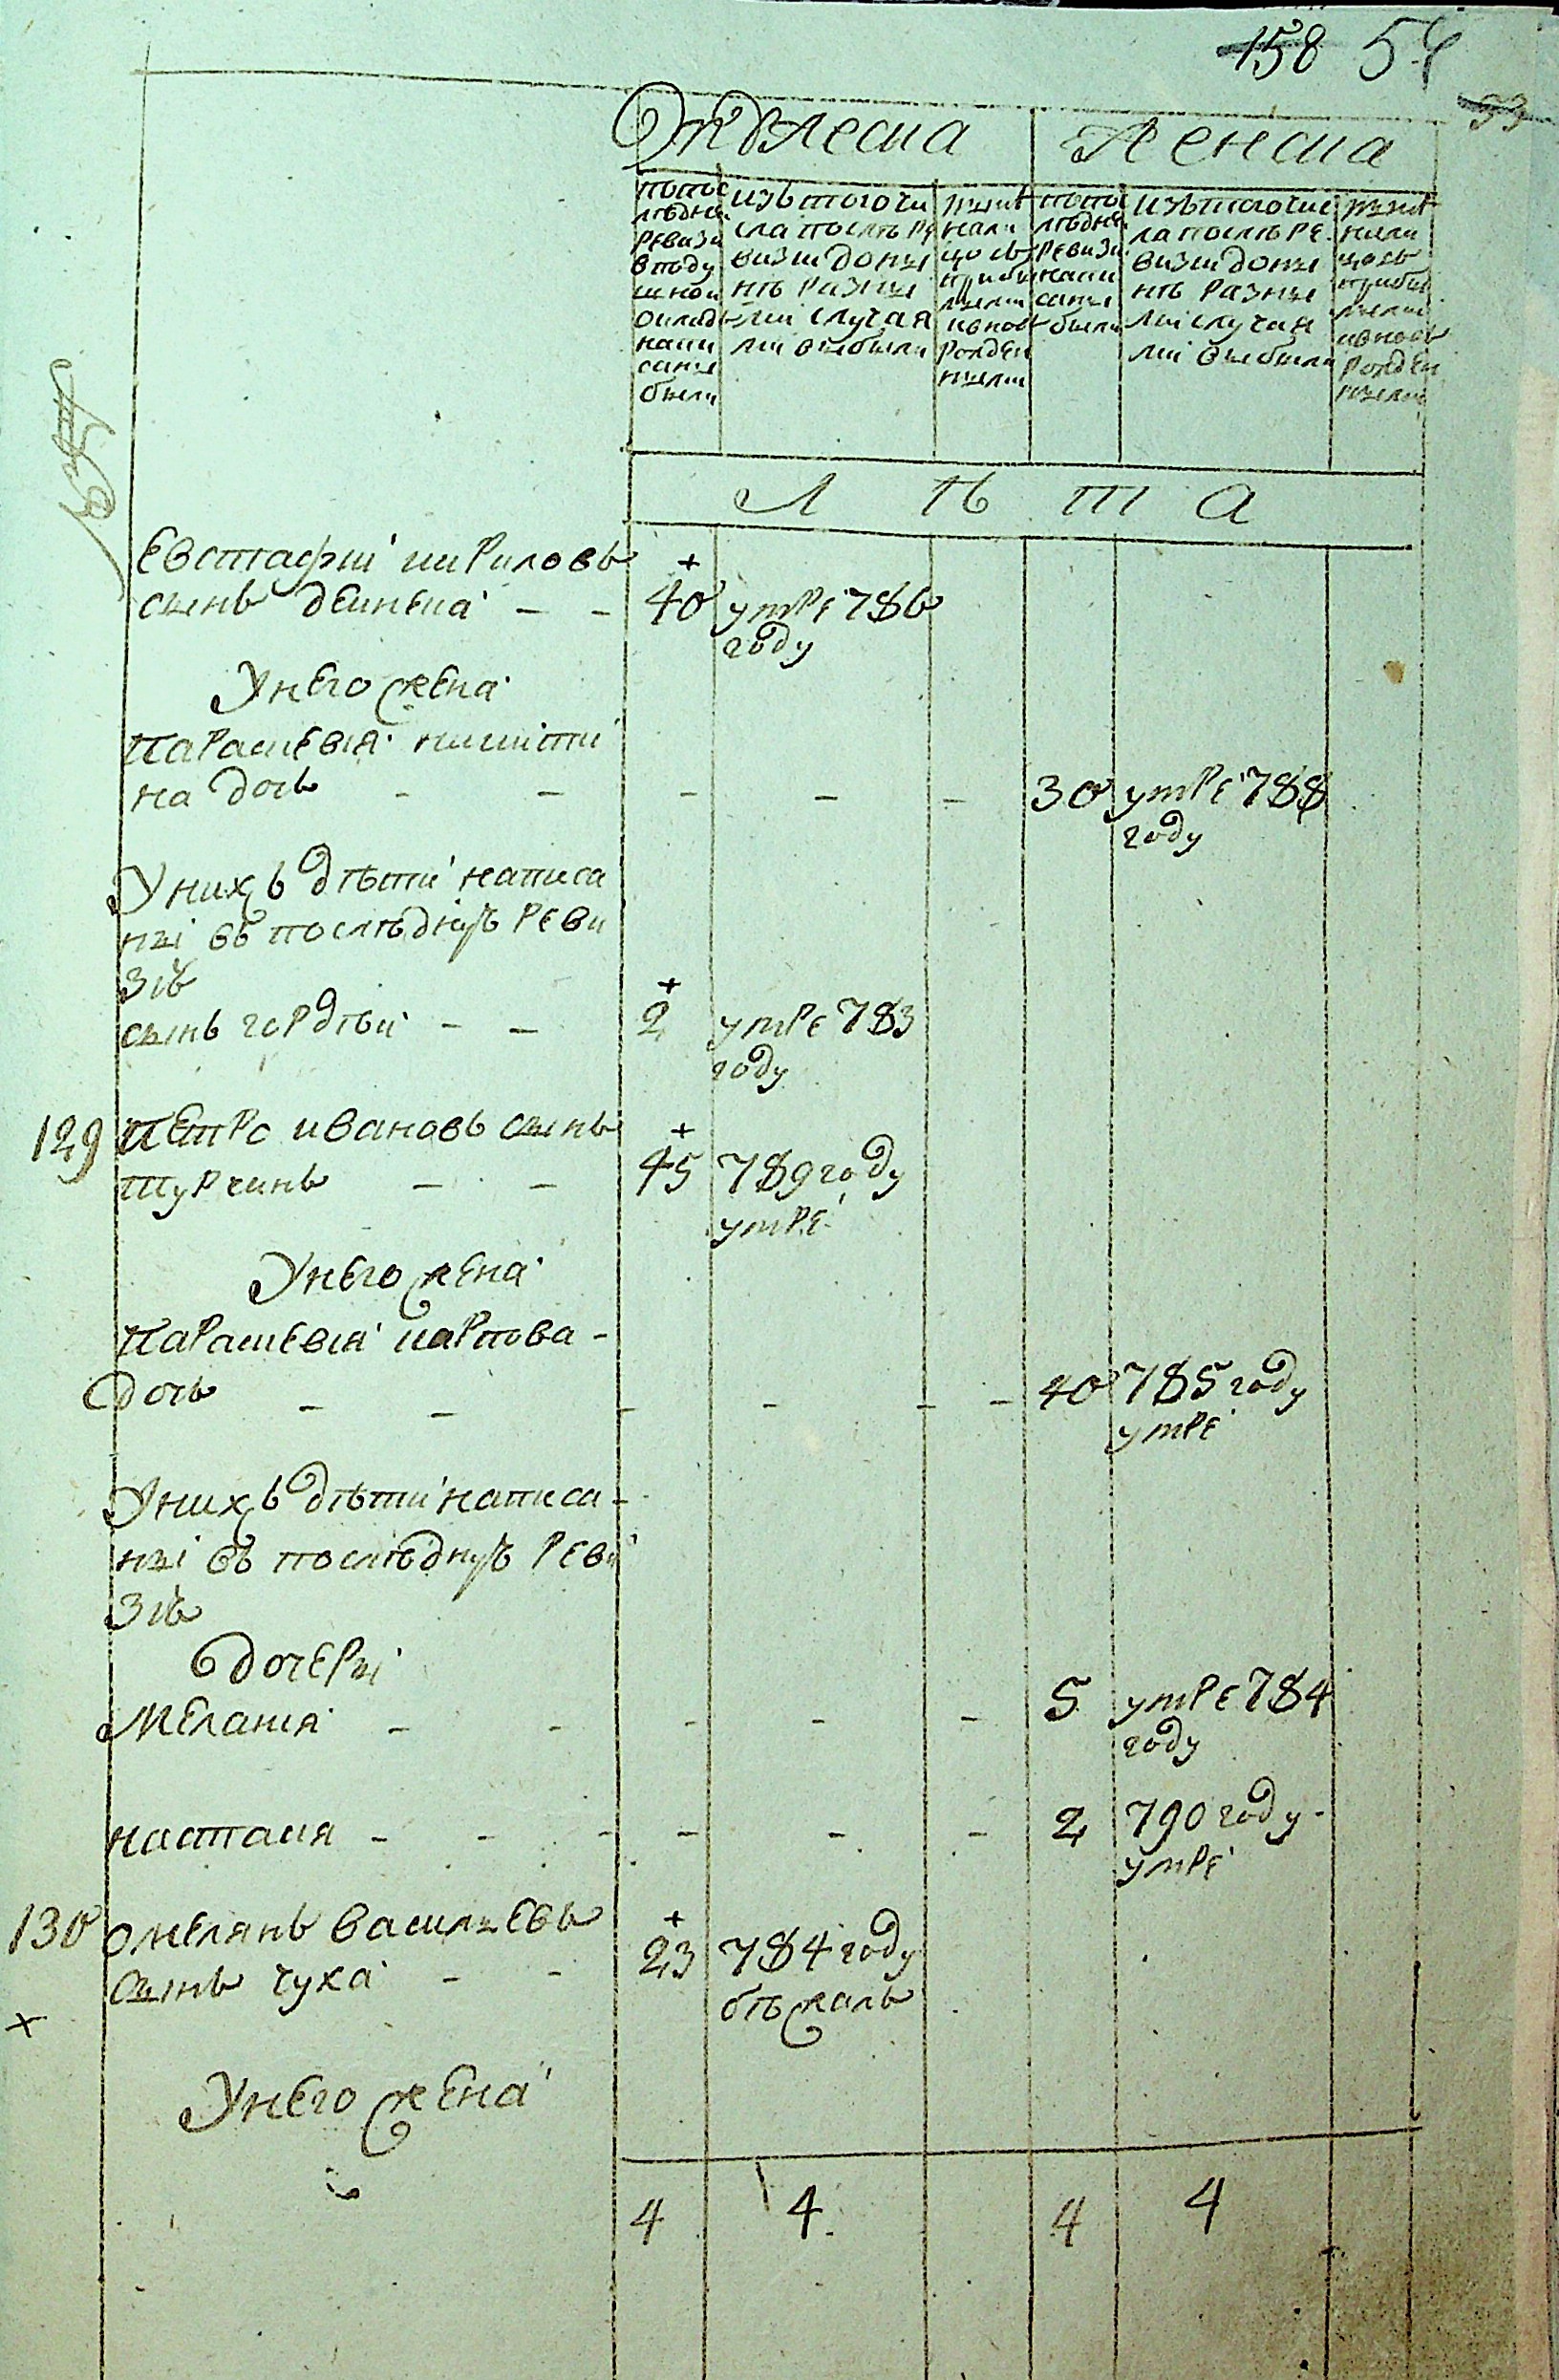 158 54
93
Мужеска Женска
по по
следне
Ревизи
в поду
шном
оклад
напи
саны
были
изъ того чи
сла послѣ Ре
визии доны
нѣ Разны
ми случая
ми выбыли
по по
следне
Ревизи
напи
саны
были
изъ того чис
ла послѣ РЕ
визии доны
нѣ Разны
ми случая
ми выбыли
Л ѣ т а
Евстафій кириловъ
сынъ дейнека - - 40 умре 786
году
У него жена
Параскевія никити
на дочь - - - - - 30 умре 788
году
У нихъ дѣти написа
ны въ последную Реви
зію
сынъ гордѣй - - 2 умре 783
году
129 Петро ивановъ сынъ
турчинъ - - 45 789 году
умре
У него жена
Параскевія карпова -
дочь - - - - - - 40 785 году
умре
У нихъ дѣти написа-
ны въ последнуюъ Реви
зію
дочеры
Меланія - - - - - 5 умре 784
году
настасия - - - - - - 2 790 году -
умре
130 омелянъ васильевъ
сынъ чуха - - 23 784 году
бѣжалъ
х
У него жена
4 4 4 4